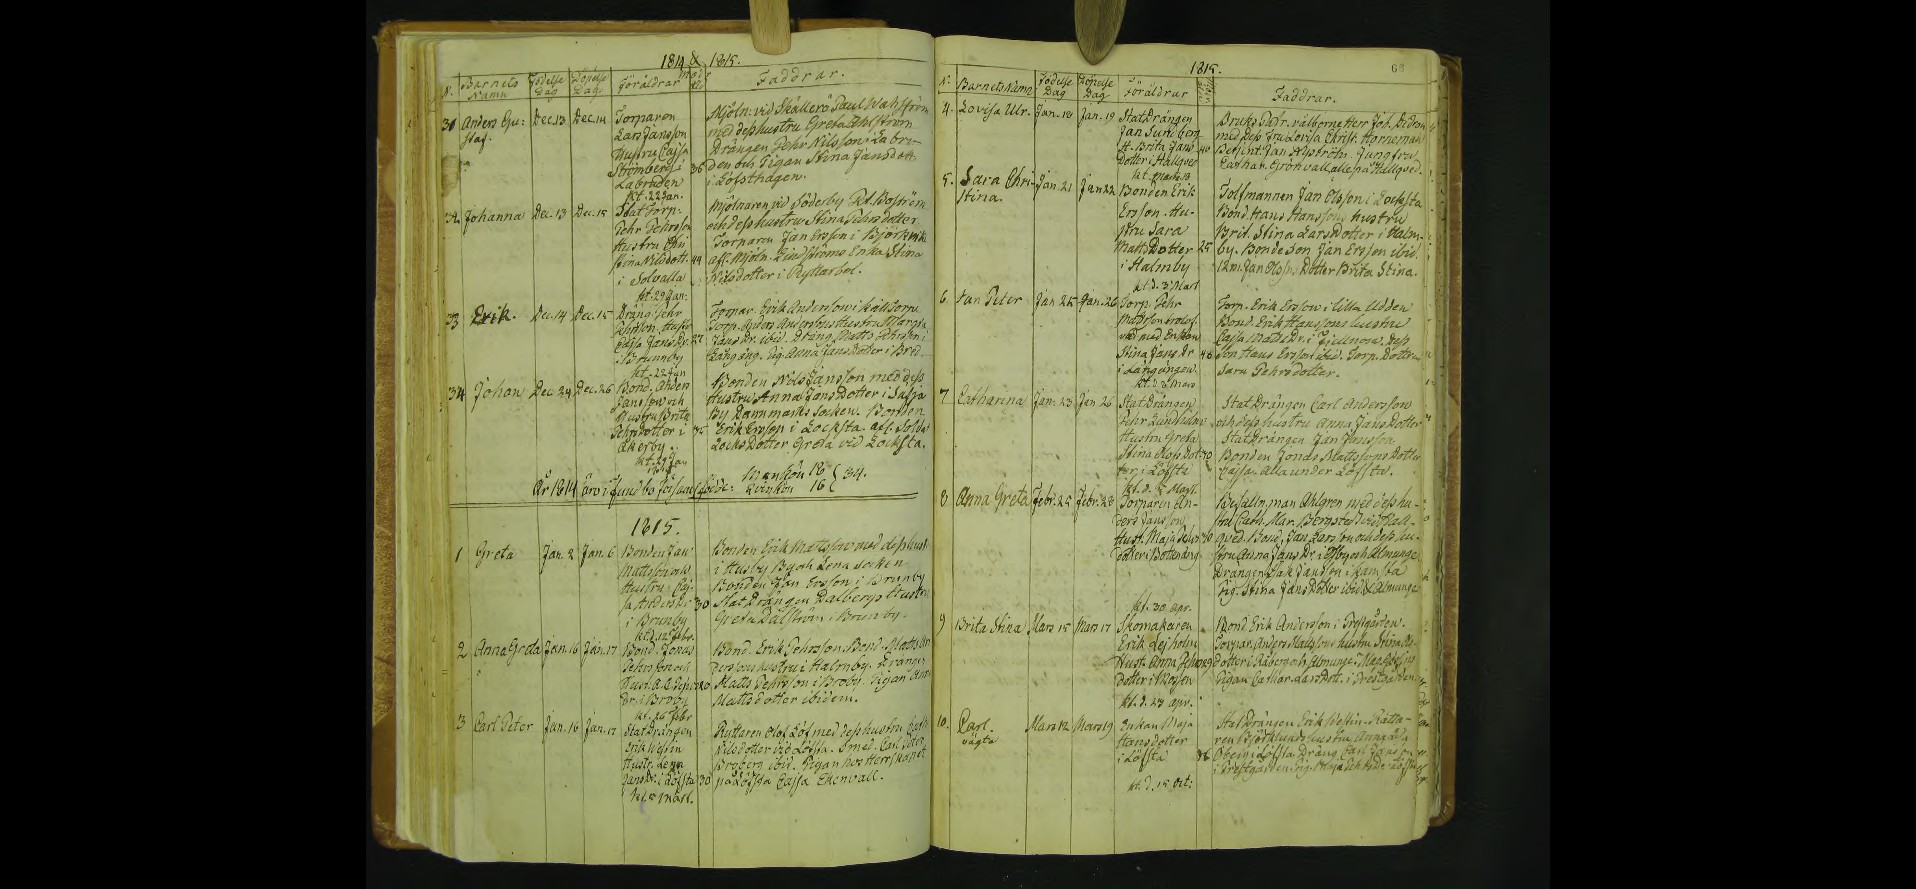 1814 & 1815.
N. Barnets Namn Födelse Dag Döpelse Dag Föräldrar Faddrar.
31 Anders Gu: Dec. 13 Dec. 14 Torparen
staf. Lars Jansson
Hustru Cajsa
Strömberg i 36
Labruden
kt. 22 Jan.
Mjöln: vid Skällerö Paul Wahlström
med dess hustru Greta Ahlström
Drängen Pehr Nilsson i Labru-
den och Pigan Stina Jansdott.
i Löfsthagen.
32 Johanna Dec. 13 Dec. 15 StatTorp:
Pehr Pehrsson
Hustru Chri
stina Nilsdott. 44
i Solvalla
kt. 29 Jan:
Mjölnaren vid Söderby Boström
och dess hustru Stina Pehrsdotter
Torparen Jan Ersson i Björkvik
afl. Mjöln. Lindströms Enka Stina
Nilsdotter i Ryttarbol.
33 Erik. Dec. 14 Dec. 15 Dräng. Pehr
Hustr
Cajsa Jansdr. 27
i Brunnby
kt. 22 Jan
Torpar. Erik Andersson i
Torp. Anders Anderssons Hustru Margta
Jans Dr. ibid. Dräng. Matts Pehrsson i
Långäng. Pig. Anna Jansdotter i Bred
34 Johan Dec. 24 Dec. 26 Bond. Anders
Jansson och
Hustru Brita
Pehrsdotter i 35
Åkerby.
kt. 29 Jan
1815
Bonden Nils Jansson med dess
Hustru Anna Jansdotter i
By Rasmarks Socken. Bonden
Erik Ersson i Locksta. afl. Solda
Locks Dotter Greta vid Locksta.
År 1814 äro i Funbo församl. födde: Mankön 18
Qvinkön 16 } 34.
1815.
1 Greta Jan. 2 Jan. 6 Bonden Jan
Mattsson och
Hustru Caj-
sa Andersdr. 30
i Brunby
kt. d. 12 Febr.
Bonden Erik Mattsson med dess hustr
i Husby By och Lena Socken
Bonden Jan Ersson i Brunby
StatDrängen Dalbergs Hustru
Greta Dalström i Brunby.
2 Anna Greta Jan. 16 Jan. 17 Bond. Jonas
Pehrsson och
Hust. A. C. 20
Dr. i Broby
kt. 26 Febr
Bond. Erik Pehrsson. Bond. Matts An
derssons hustru i Halmby. Drängen
Matts Pehrsson i Broby. Pigan Ann
Mattsdotter ibidem.
3 Carl Peter Jan. 16 Jan. 17 StatDrängen
Erik Hellin
Hustr. Lena
Jansdr. i Löfsta 30
kt. 5 Mart.
Ryttaren Olof Löf med dess hustru Cath
Nilsdotter vid Löfsta. Smed. Carl Peter
Broberg ibid. Pigan hos Herrskapet
på Löfsta Cajsa Ekenvall.
1815. 68
N. Barnets Namn Födelse Dag Döpelse Dag Föräldrar Faddrar.
4. Lovisa Ulr. Jan. 18 Jan. 19 StatDrängen
Jan Sundberg
H. Brita Jans 40
Dotter i Hallqved
kt. Marti 13
Bruks Patr. välborne Herr Joh.
med dess Fru Lovisa Christ. Horneman
Jan Nyström. Jungfru
Cathar. Grönvall alla på Hallqved.
5. Sara Chri- Jan. 21 Jan 22 Bonden Erik
stina. Ersson. Hu-
stru Sara
Matts Dotter 25
i Halmby
kt. d. 3 Mart
Tolfmannen Jan Olsson i Locksta
Bond. Hans Hanssons hustru
Brit. Stina Larsdotter i Halm-
by. BondeSon Jan Ersson ibid.
12m. Jan Olss. Dotter Brita Stina.
6. Jan Peter Jan 25 Jan. 26 Torp. Pehr
Mattsson
Stina Jans Dr 46
i Långängen.
kt. d. 3 Mars
Torp. Erik Ersson i Lilla Udden
Bond. Erik Hanssons hustru
Cajsa Matts Dr. i Gillinge. dess
Son Hans Ersson ibid. Torp. Dotter
Sara Pehrsdotter.
7 Catharina Jan. 23 Jan 26 StatDrängen
Pehr Lundholm
Hustru Greta
Stina Olofs Dot 30
ter, i Löfsta
kt. d. 5 Mart.
StatDrängen Carl Andersson
och dess hustru Anna Jansdotter
StatDrängen Jan Jansson
Bonden Jonas Mattssons Dotter
Cajsa. Alla under Löfsta.
8 Anna Greta Febr. 25 Febr. 28 Torparen An-
ders Jansson
Hust. Maja
dotter i
kt. 30 Apr.
Befalln.man Ahlgren med dess hu-
stru Cath. Mar. Bergstedt vid Hall-
qved. Bond. Jan Larsson och dess hu-
stru Anna Jans Dr. i Esby och Almunge.
Drängen Isak Jansson i Karsta
Pig. Stina Jans Dotter ibid. & Almunge
9 Brita Stina Mars 15 Mars 17 Skomakaren
Erik Lejholm
Hust. Anna Jehans 29
Dotter i Mossen
kt. d. 23 apr.
Bond Erik Andersson i Prestgården.
Torpar. Anders Mattssons hustru Stina Ols
dotter i Råberg och Almunge.
Pigan Cathar. Larsdott. i Prestgården.
10. Carl. Mars 12 Mars 19 Enkan Maja
oägta Hansdotter
i Löfsta 36
kt. d. 15 Oct:
StatDrängen Erik Hellin. Rätta-
ren Björklunds hustru Anna
i Löfsta Dräng Carl Jansson
i Prestgården. Pig. Maja